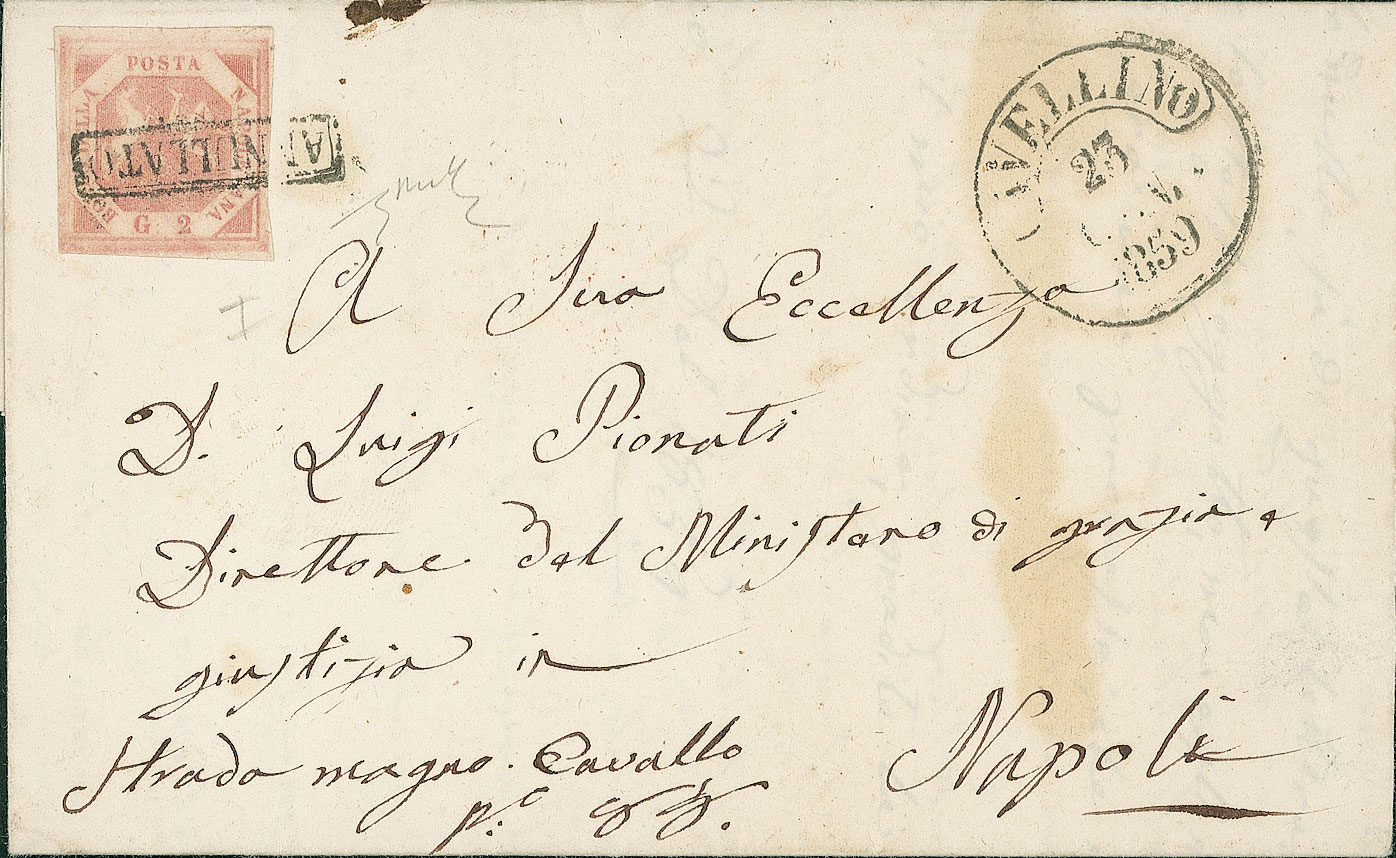 POSTA
NAPOLETANA
BOLLO DELLA
G. 2
ANNULLATO
AVELLINO
23
GEN.
1859
A Sua Eccellenza
D. Luigi Pionati
Direttore del Ministero di grazia e
giustizia in
Strada magno. Cavallo
Napoli